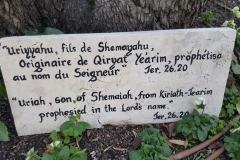 "Uriyyahu, fils de Shemayahu,
Originaire de Qiryat Yéarim, prophétisa
au nom du Seigneur" Jer. 26.20
"Uriah, son of Shemaiah, from Kiriath-Jearim
prophesied in the Lord's name."
Jer. 26.20